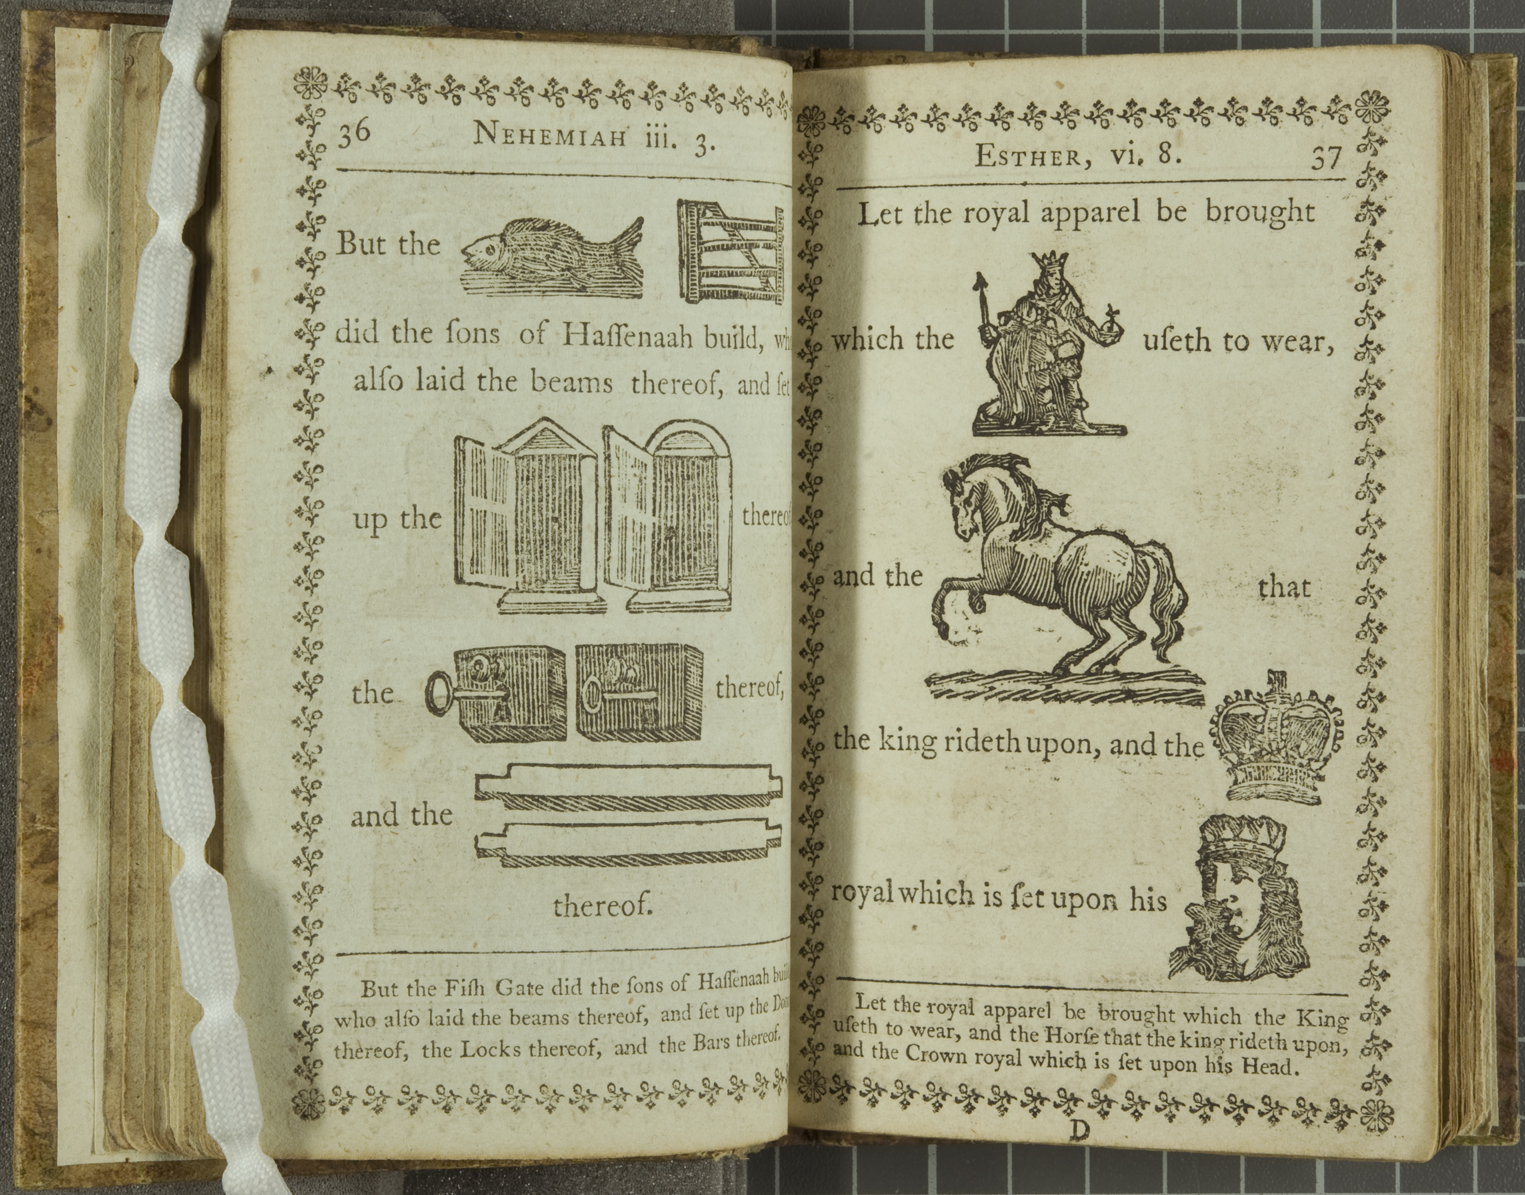 36 NEHEMIAH iii. 3.
But the
did the ſons of Haſſenaah build,
alſo laid the beams thereof, and
up the
the thereof,
and the
thereof.
But the Fiſh Gate did the ſons of Haſſenaah
who alſo laid the beams thereof, and ſet up the
thereof, the Locks thereof, and the Bars thereof.
ESTHER, vi. 8. 37
Let the royal apparel be brought
which the uſeth to wear,
and the that
the king rideth upon, and the
royal which is ſet upon his
Let the royal apparel be brought which the King
uſeth to wear, and the Horſe that the king rideth upon,
and the Crown royal which is ſet upon his Head.
D